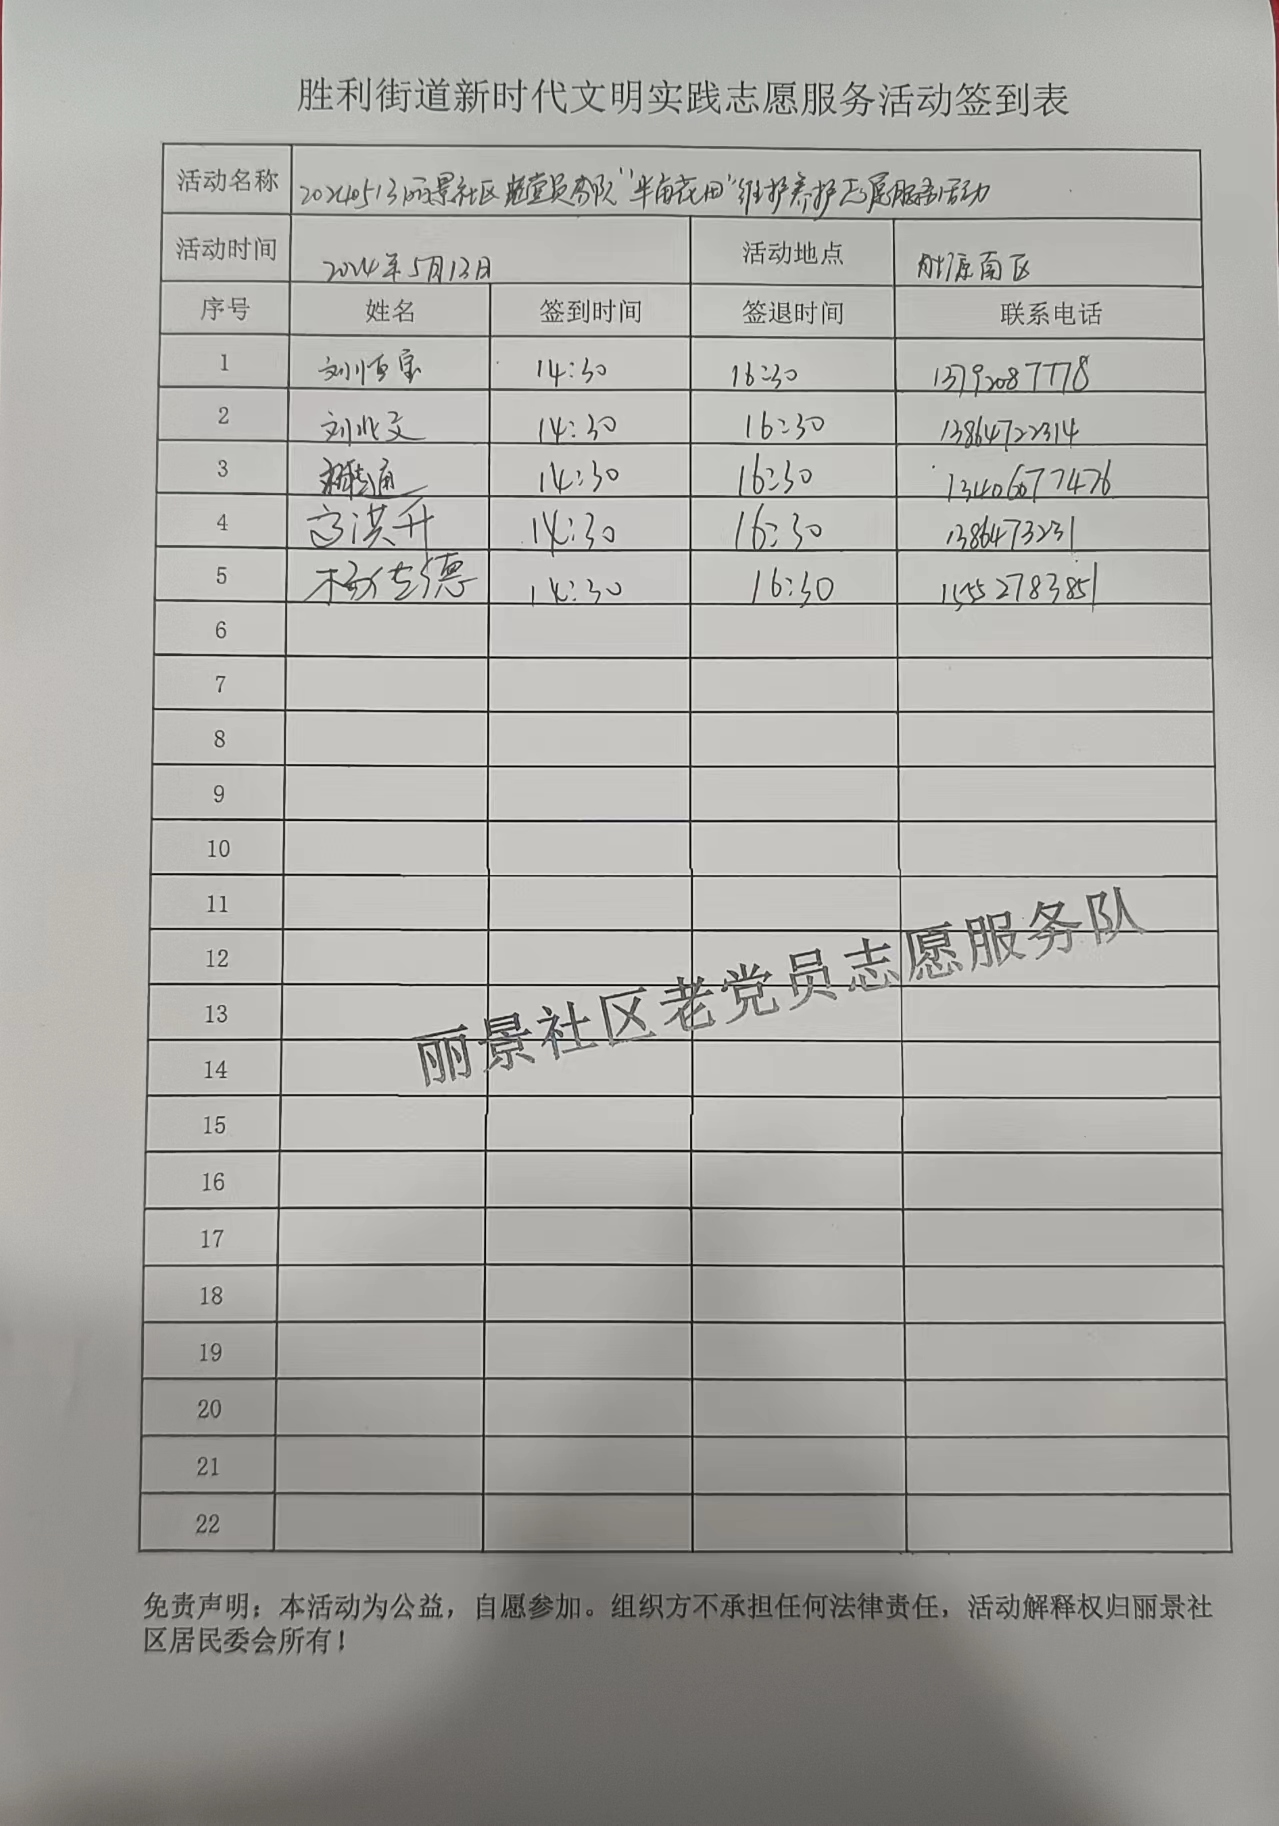 胜利街道新时代文明实践志愿服务活动签到表
活动名称 20240513丽景社区老党员服务队“半亩花田”维护养护志愿服务活动
活动时间 2024年5月13日 活动地点 南区
序号 姓名 签到时间 签退时间 联系电话
1 刘 宝 14:30 16:30 13792087778
2 刘兆文 14:30 16:30 13864722314
3 14:30 16:30 13406677476
4 高洪升 14:30 16:30 1386473231
5 杨佳德 14:30 16:30 15552783851
6
7
8
9
10
11
12
13
14
15
16
17
18
19
20
21
22
丽景社区老党员志愿服务队
免责声明：本活动为公益，自愿参加。组织方不承担任何法律责任，活动解释权归丽景社
区居民委会所有！